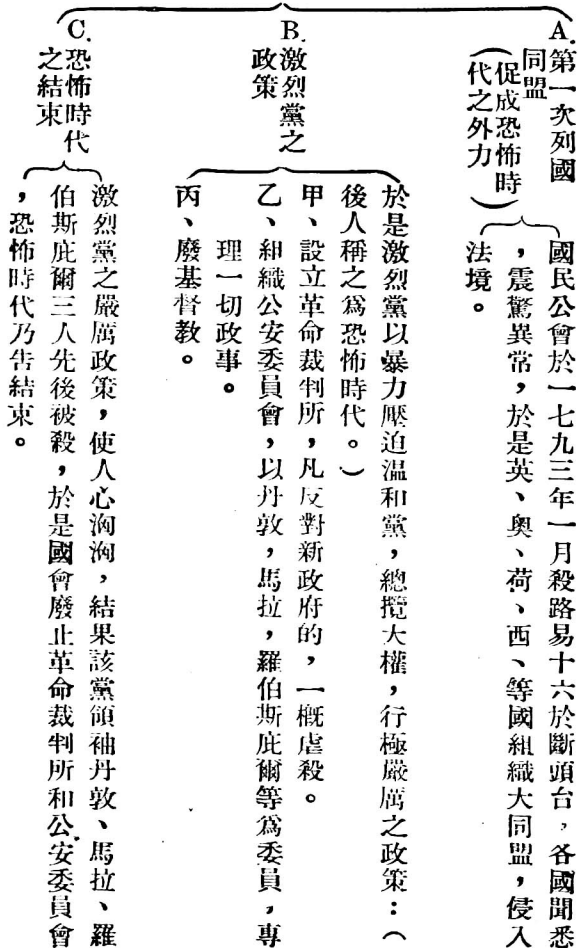 A.第一次列國
同盟
(促成恐怖時
代之外力)
國民公會於一七九三年一月殺路易十六於斷頭台，各國聞悉
，震驚異常，於是英、奧、荷、西、等國組織大同盟，侵入
法境。
B.激烈黨之
政策
於是激烈黨以暴力壓迫温和黨，總攬大權，行極嚴厲之政策：(
後人稱之爲恐怖時代。)
甲、設立革命裁判所，凡反對新政府的，一概虐殺。
乙、組織公安委員會，以丹敦，馬拉，羅伯斯庇爾等爲委員，專
理一切政事。
丙、廢基督教。
C.恐怖時代
之結束
激烈黨之嚴厲政策，使人心洶洶，結果該黨領袖丹敦、馬拉、羅
伯斯庇爾三人先後被殺，於是國會廢止革命裁判所和公安委員會
，恐怖時代乃告結束。